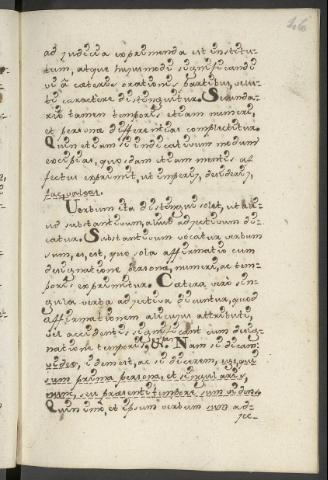 46
ad judicia exprimenda est institu-
tum, atque hujusmodi significandi
vi a cæteris orationis partibus, veluti
charactere distinguitur. Secunda-
rio tamen temporis etiam numeri,
et personæ differentias complectitur.
Quin etiam si indicativum modum
excipias, quosdam etiam mentis af-
fectus exprimit, ut imperij, desiderij,
Verbum ita distingui solet, ut ali-
ud substantivum, aliud adjectivum di-
catur. Substantivum vocatur verbum
sum, es, est, quo sola affirmatio cum
designatione personæ, numeri, ac tem-
poris exprimitur. Cætera vero sin-
gula verba adjectiva dicuntur, quod
affirmationem alicujus attributi,
vel accidentis significant cum desig-
natione temporis. Nam si dicam
idem est, ac si dicerem,
sum prima persona, et singularis,
nunc, seu præsenti tempore sum
Quin imo, et ipsum verbum ad-
jec-